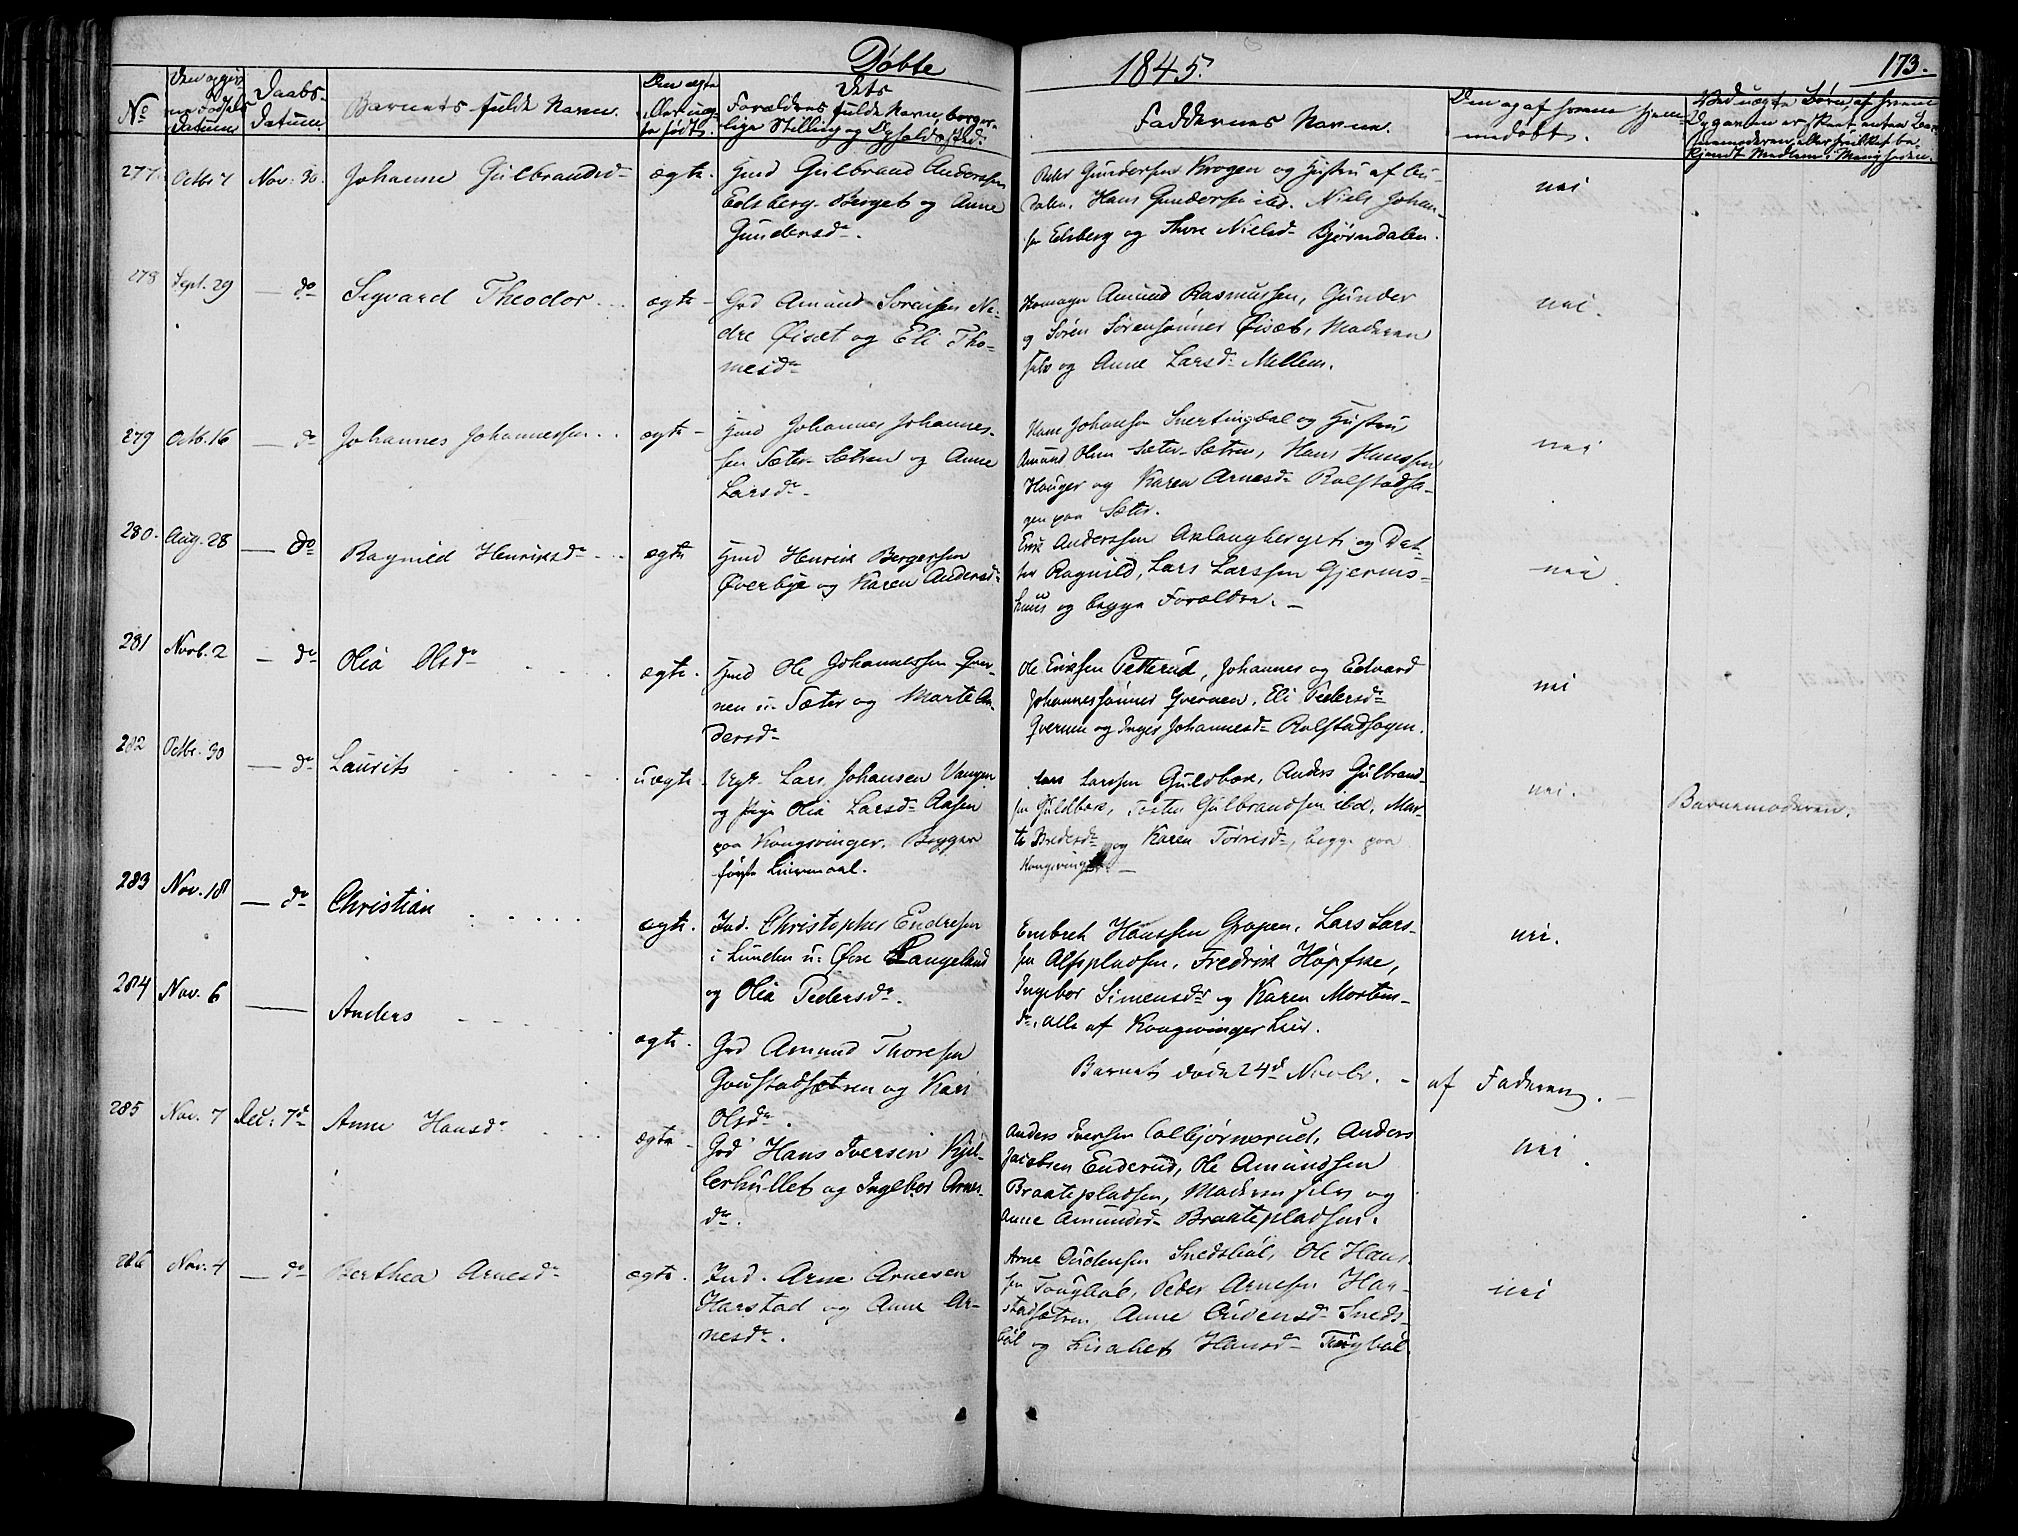 Døbte 1845. 173.
No
Datum
Daabs-
Datum
Barnets fulde Navn.
Faddernes Navne.
277. Octbr 7 Nov. 30. Johanne Gulbrandsd. ægte. Hmd Gulbrand Anderssen
Berget og Anne
Gundersd.
Peder Gundersen Krogen og Hustru af Au-
dalen, Hans Gundersen ibd. Niels Johan-
sen Edsberg og Thore Nielsd. Bjørndalen.
nei
278 Sept. 29 — do Sigvard Theodor ægte Grd Amund Sørensen Ne-
dre Øiset og Eli Tho-
mesd.
Amund Rasmussen, Gunder
og Sören Sørensønner Øisæt, Moderen
selv og Anne Larsd. Mellem.
nei.
279 Octb. 16 — do Johannes Johannessen ægte Hmd Johannes Johannes-
sen Sæter-Sætren og Anne
Larsd.
Hans Johansen Snertingdal og Hustru,
Amund Olsen Sæter-Sætren, Hans Hanssen
Hauger og Karen Arnesd. Rolstadha-
gen paa Sæter.
nei
280. Aug. 28 — do Ragnild Henriksd. ægte Hmd Henrik Bergersen
Øverbye og Karen Andersd.
Erik Anderssen Aslangberget og Dat-
ter Ragnild, Lars Larssen Gjerms-
huus og begge Forældre. —
nei
281 Novb. 2 — do Olia Olsd. ægte. Hmd Ole Johannessen Qver-
nen u. Sæter og Marte An-
dersd.
Ole Eriksen Petterud, Johannes og Edvard
Johannessønner Qvernen, Eli Pedersd.
Qvernen og Inger Johannesd. Rolstadhagen.
nei
282 Octbr. 30 — do Laurits uægte. Ugt. Lars Johansen Vangen
og Pige Olia Larsd. Aasen
paa Kongsvinger. Begges
første Leiermaal.
Lars Larssen Guldbæk, Anders Gulbrand-
sen Guldbæk, Gulbrandsen ibd. Mar-
te og Karen Torresd., begge paa
Kongsvinger. —
nei.
Barnemoderen.
283 Nov. 18 — do Christian ægte. Ind. Christopher Endresen
i Lunden u. Øvre Langeland
og Olia Pedersd.
Embret Hanssen Gropen, Lars Lars-
sen Alfspladsen, Fredrik Høpfke,
Ingebor Simensdr og Karen Mortens-
dr, alle af Kongsvinger Leir.
nei.
284 Nov. 6 — Anders ægte. Grd Amund Thoresen
Gaustadsætren og Kari
Olsd.
Barnet døde 24d Novbr. —
af Faderen. —
285 Nov. 7 Dec. 7d Anne Hansd. ægte Grd Hans Iversen Kjel-
lerhullet og Ingebor Arnes-
dr.
Anders Iversen Colbjørnsrud, Anders
Jacobsen Enderud, Ole Amundsen
Braatepladsen, Moderen selv og
Anne Amundsd. Braatepladsen.
nei
286 Nov. 4 — do Berthea Arnesd. ægte. Ind. Arne Arnesen
Harstad og Anne Ar-
nesd.
Arne Oudensen Snedsbøl, Ole Hans-
sen Peder Arnesen Har-
stadsætren, Anne Oudensd. Sneds-
bøl og Lisabet Hansd.
nei